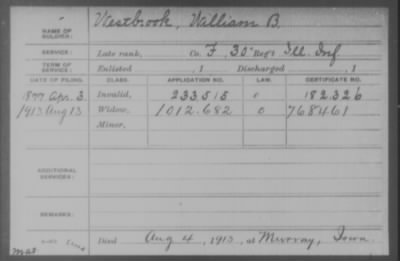 NAME OF SOLDIER: Westbrook, William B.
SERVICE: Late rank, Co. F, 30" Reg't Ill. Inf
TERM OF SERVICE: Enlisted , 1 Discharged , 1
DATE OF FILING. CLASS. APPLICATION NO. LAW. CERTIFICATE NO.
1877 Apr. 3 Invalid, 233,515 0 182.326
1913 Aug 13 Widow, 1012.682 0 768461
Minor,
ADDITIONAL SERVICES:
REMARKS:
Died Aug 4, 1913, at Murray, Iowa.